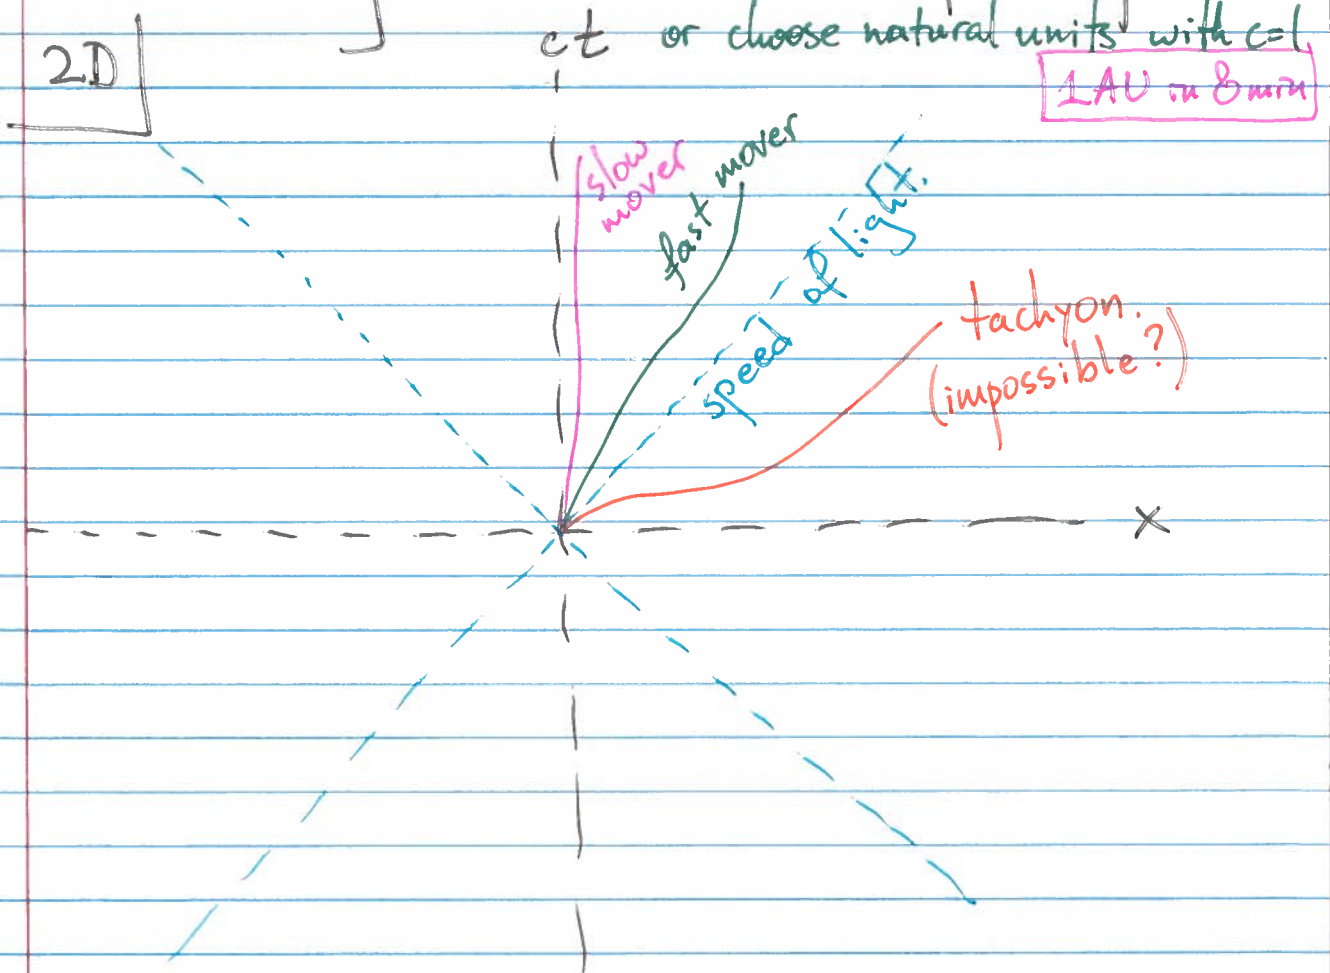 ct or choose natural units with c=1
2D
1AU in 8min
slow
mover
fast mover
speed of light.
tachyon.
(impossible?)
x